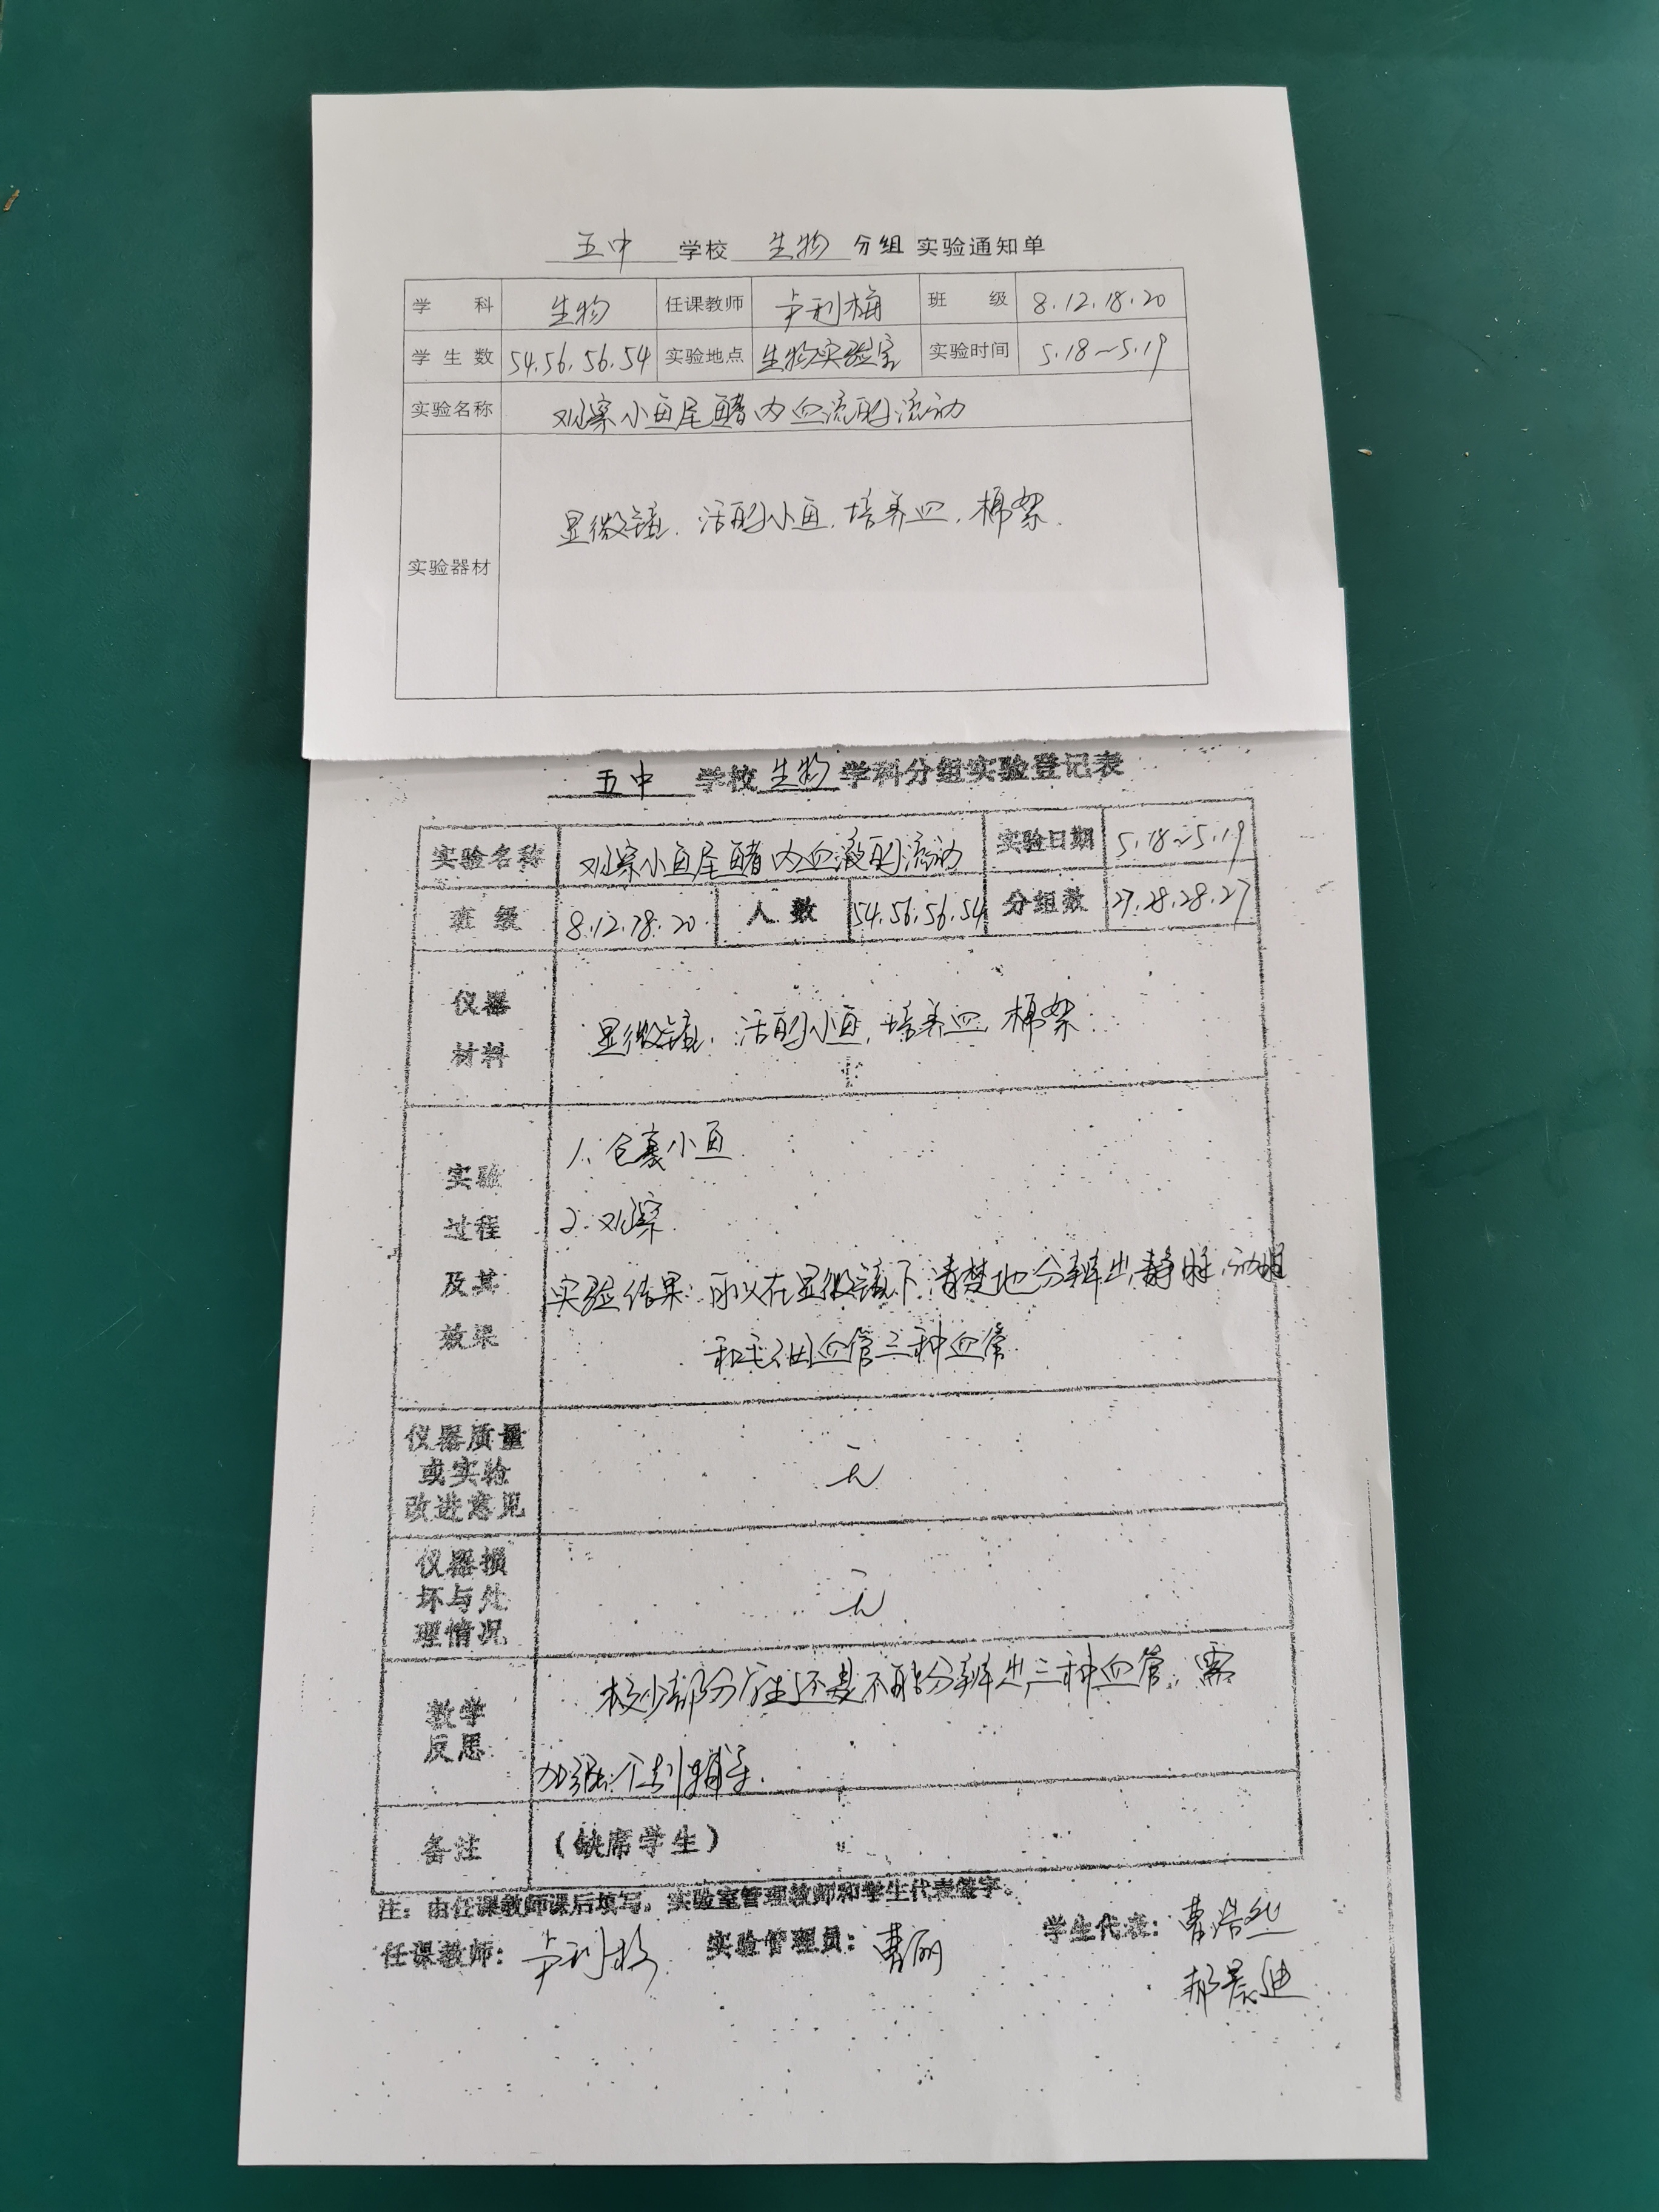 五中 学校 生物 分组 实验通知单
学 科 生物 任课教师 卢利梅 班 级 8.12.18.20
学 生 数 54.56.56.54 实验地点 生物实验室 实验时间 5.18~5.19
实验名称 观察小鱼尾鳍内血流的流动
显微镜.活的小鱼.培养皿.棉絮.
实验器材
五中 学校 生物 学科分组实验登记表
实验名称 观察小鱼尾鳍内血液的流动 实验日期 5.18~5.19
班 级 8.12.18.20. 人 数 54.56.56.54 分组数 27.28.28.27
仪器
材料
显微镜.活的小鱼,培养皿 棉絮
实验
过程
及其
效果
1.包裹小鱼
2.观察.
实验结果:可以在显微镜下清楚地分辨出静脉.动脉
和毛细血管三种血管.
仪器质量
或实验
改进意见
无
仪器损
坏与处
理情况
无
教学
反思
较少部分学生还是不能分辨出三种血管,需
加强个别辅导.
备注 (缺席学生)
注:由任课教师课后填写,实验室管理教师和学生代表签字。
任课教师:卢利梅 实验管理员:曹丽 学生代表:曹浩